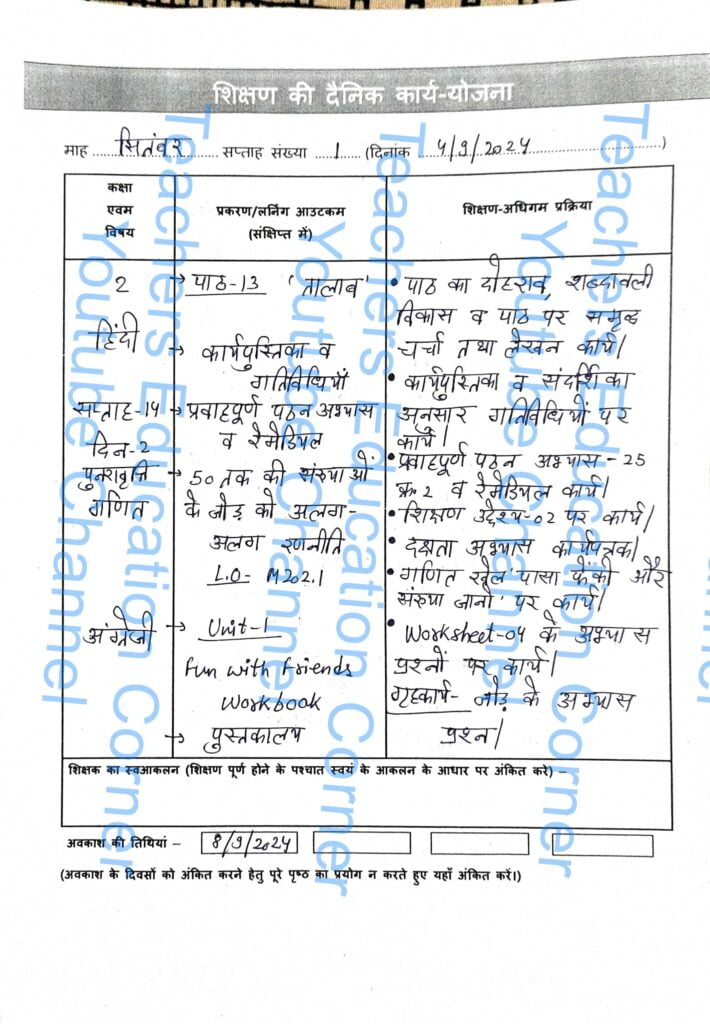 शिक्षण की दैनिक कार्य-योजना
माह सितंबर सप्ताह संख्या 1 (दिनांक 4/9/2024)
कक्षा
एवम
विषय
प्रकरण/लर्निंग आउटकम
(संक्षिप्त में)
शिक्षण-अधिगम प्रक्रिया
2
हिंदी
सप्ताह-14
दिन-2
पुनरावृत्ति
गणित
अंग्रेजी
→ पाठ-13 'तालाब'
→ कार्यपुस्तिका व
गतिविधियाँ
→ प्रवाहपूर्ण पठन अभ्यास
व रेमेडियल
→ 50 तक की संख्याओं
के जोड़ को अलग-
अलग रणनीति
L.O- M202.1
→ Unit-1
Fun with Friends
Workbook
→ पुस्तकालय
• पाठ का दोहराव, शब्दावली
विकास व पाठ पर समृद्ध
चर्चा तथा लेखन कार्य।
• कार्यपुस्तिका व संदर्शिका
अनुसार गतिविधियों पर
कार्य।
• प्रवाहपूर्ण पठन अभ्यास-25
क्र० 2 व रेमेडियल कार्य।
• शिक्षण उद्देश्य-02 पर कार्य।
• दक्षता अभ्यास कार्यपत्रक।
• गणित खेल 'पासा फेंको और
संख्या जानो' पर कार्य।
• Worksheet-04 के अभ्यास
प्रश्नों पर कार्य।
गृहकार्य- जोड़ के अभ्यास
प्रश्न।
शिक्षक का स्वआकलन (शिक्षण पूर्ण होने के पश्चात स्वयं के आकलन के आधार पर अंकित करे) –
अवकाश की तिथियां – 8/9/2024
(अवकाश के दिवसों को अंकित करने हेतु पूरे पृष्ठ का प्रयोग न करते हुए यहाँ अंकित करें।)
Teachers Education Corner
Youtube Channel
Teachers Education Corner
Youtube Channel
Teachers Education Corner
Youtube Channel